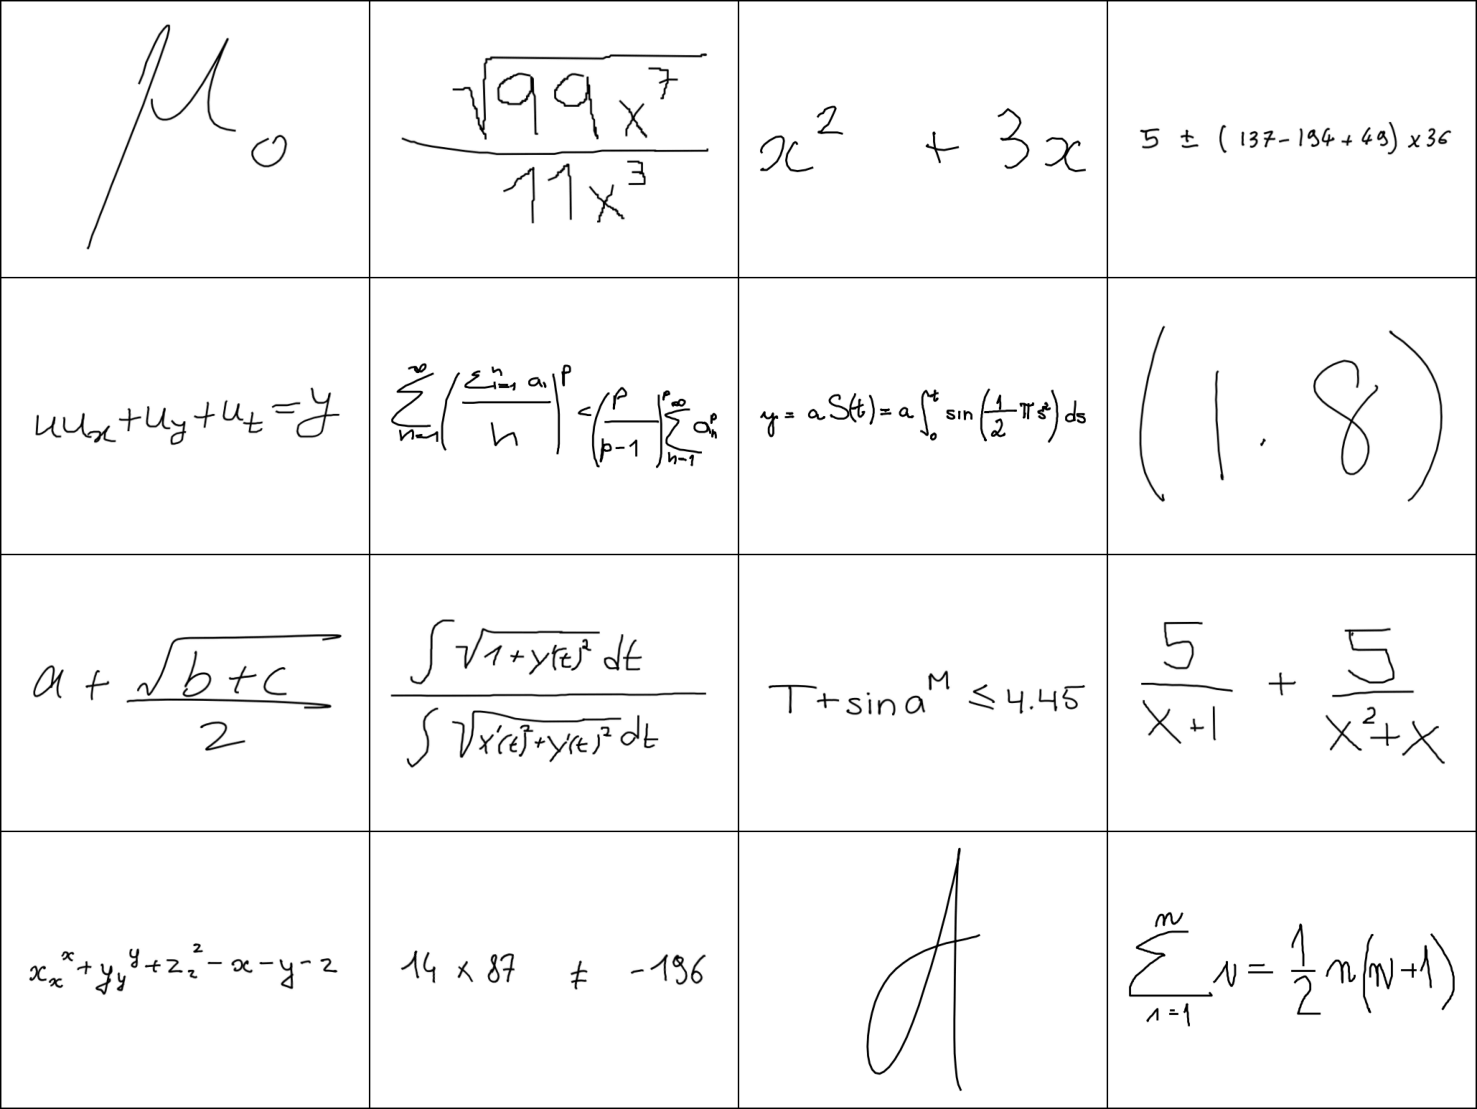 μ₀
√(99x⁷) / 11x³
x² + 3x
5 ± (137-194+49) x 36
uuₓ+u_y+u_t=y
∑_{n=1}^{∞} (∑_{i=1}^{n} a_i / n)^p < (p / p-1)^p ∑_{n=1}^{∞} a_n^p
y = a S(t) = a ∫_0^t sin(1/2 π s²) ds
(1.8)
a + √(b+c) / 2
∫ √(1+y'(t)²) dt / ∫ √(x'(t)²+y'(t)²) dt
T+sin a^M ≤ 4.45
5 / x+1 + 5 / x²+x
x_x^x + y_y^y + z_z^z - x - y - z
14 x 87 ≠ -196
∑_{i=1}^{n} i = 1/2 n(n+1)